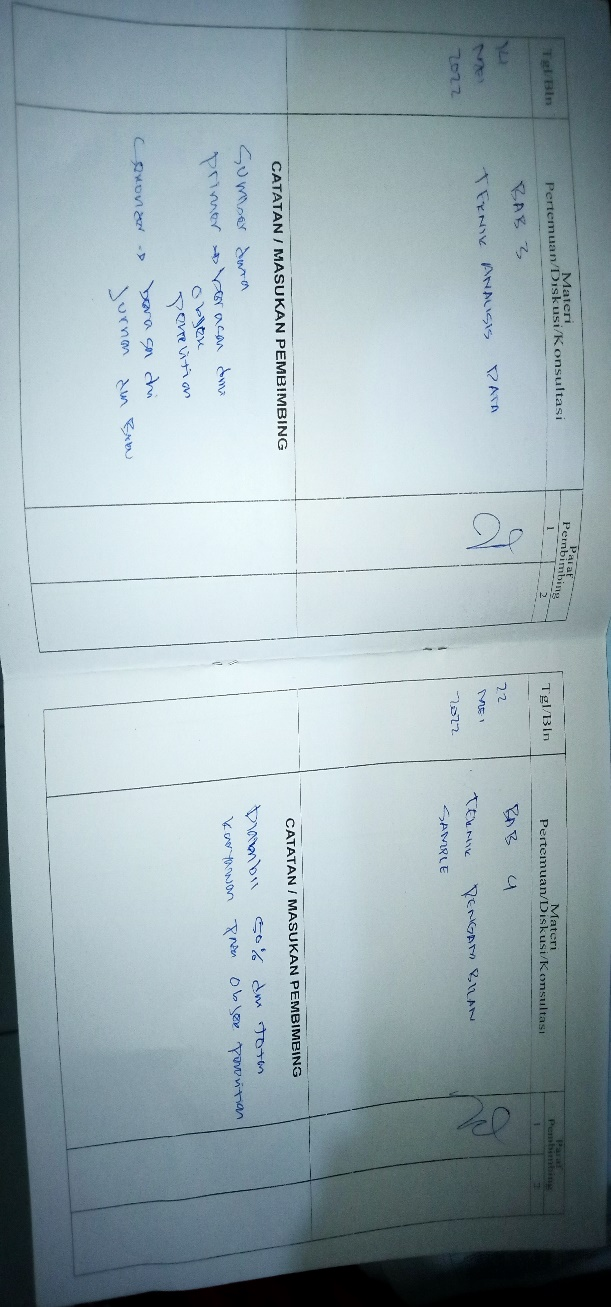 Tgl/Bln
Materi
Pertemuan/Diskusi/Konsultasi
Paraf
Pembimbing
1
2
14
MEI
2022
BAB 3
TEKNIK ANALISIS DATA
CATATAN / MASUKAN PEMBIMBING
Sumber data
primer → berasal dari
objek
penelitian
berasal dri
Jurnal dan Buku
Tgl/Bln
Materi
Pertemuan/Diskusi/Konsultasi
Paraf
Pembimbing
1
2
22
MEI
2022
BAB 4
TEKNIK PENGAMBILAN
SAMPLE
CATATAN / MASUKAN PEMBIMBING
Diambil 50% dari total
karyawan pada objek penelitian